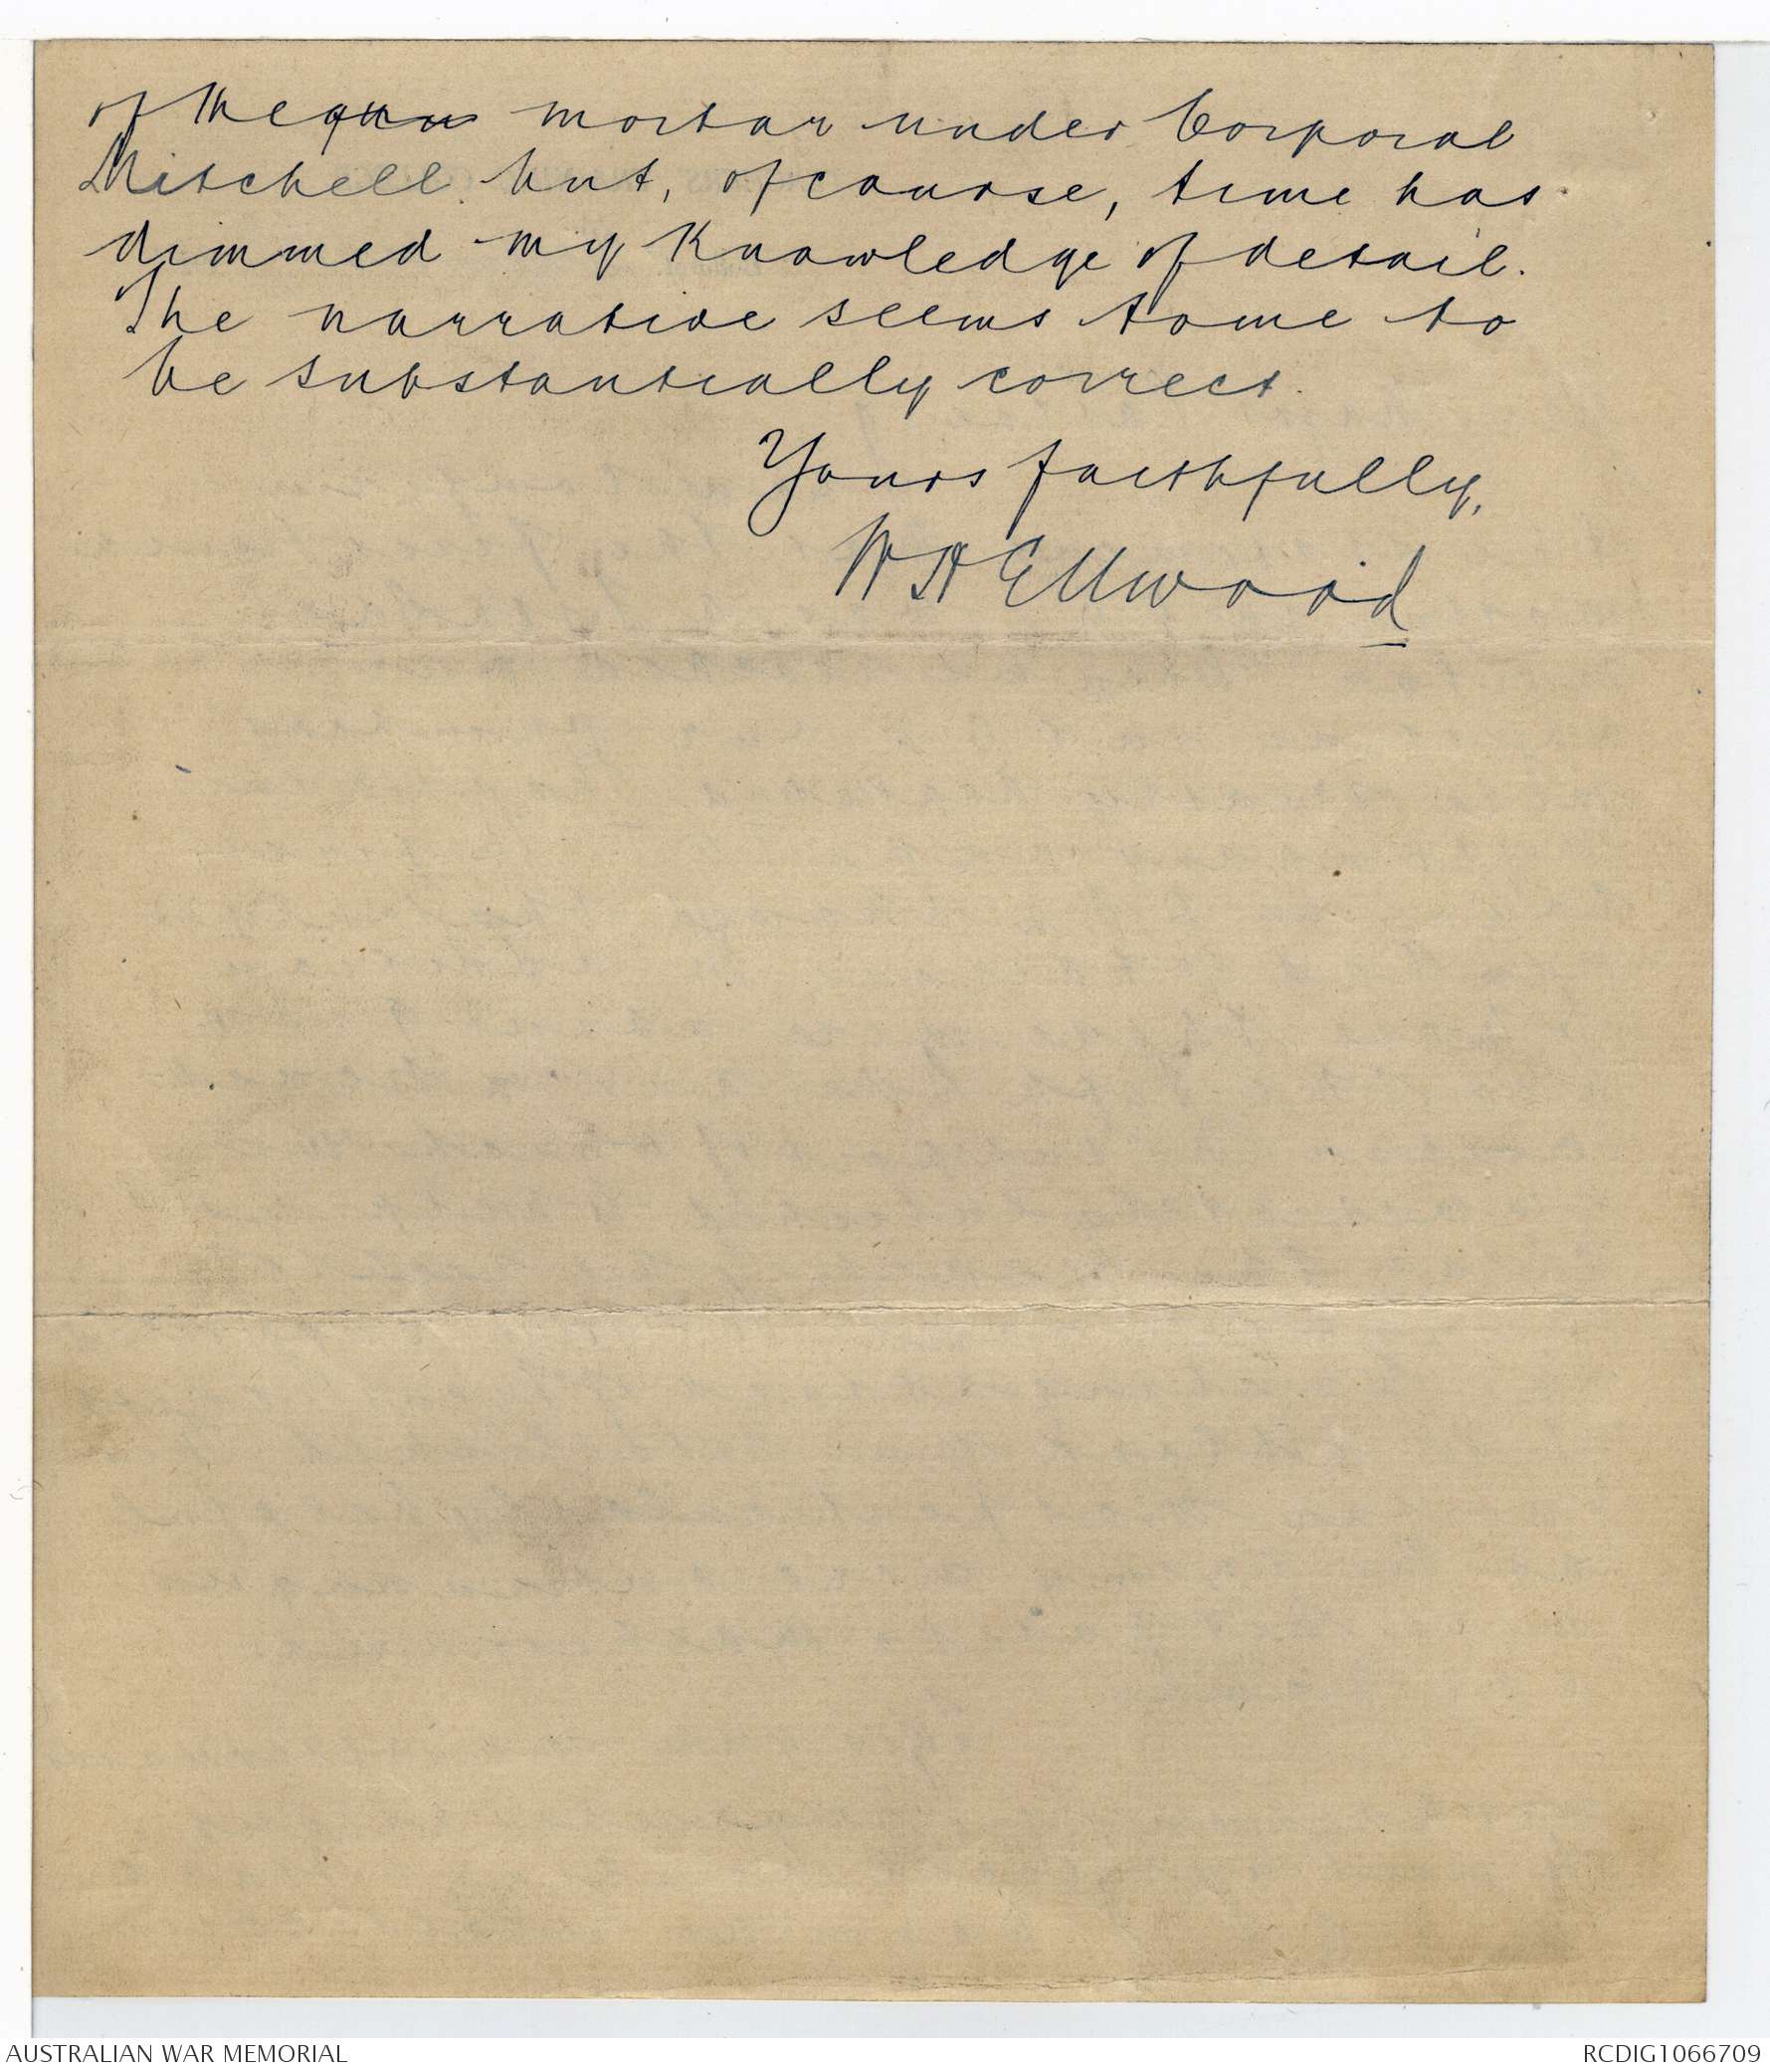 of the guns mortar under Corporal
Mitchell but, of course, time has
dimmed my knowledge of detail.
The narrative seems to me to
be substantially correct.
Yours faithfully,
W H Ellwood
AUSTRALIAN WAR MEMORIAL
RCDIG1066709